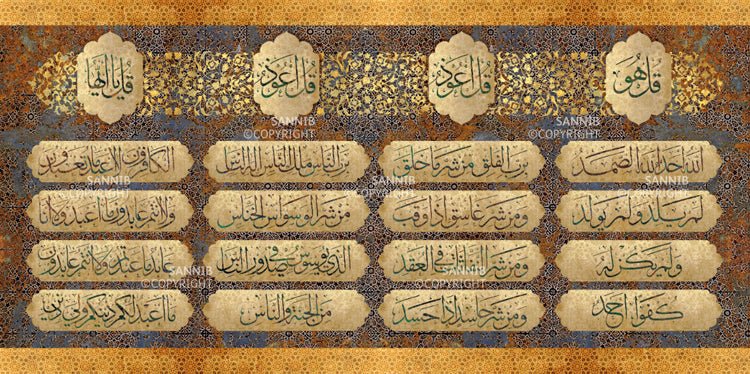 قل هو
الله احد الله الصمد
لم يلد ولم يولد
ولم يكن له
كفوا احد
قل اعوذ
برب الفلق من شر ما خلق
ومن شر غاسق اذا وقب
ومن شر النفاثات فى العقد
ومن شر حاسد اذا حسد
قل اعوذ
برب الناس ملك الناس اله الناس
من شر الوسواس الخناس
الذى يوسوس فى صدور الناس
من الجنة والناس
قل يا ايها
الكافرون لا اعبد ما تعبدون
ولا انتم عابدون ما اعبد ولا انا
عابد ما عبدتم ولا انتم عابدون
ما اعبد لكم دينكم ولى دين
SANNIB
©COPYRIGHT
SANNIB
©COPYRIGHT
SANNIB
©COPYRIGHT
SANNIB
©COPYRIGHT
SANNIB
©COPYRIGHT
SANNIB
©COPYRIGHT